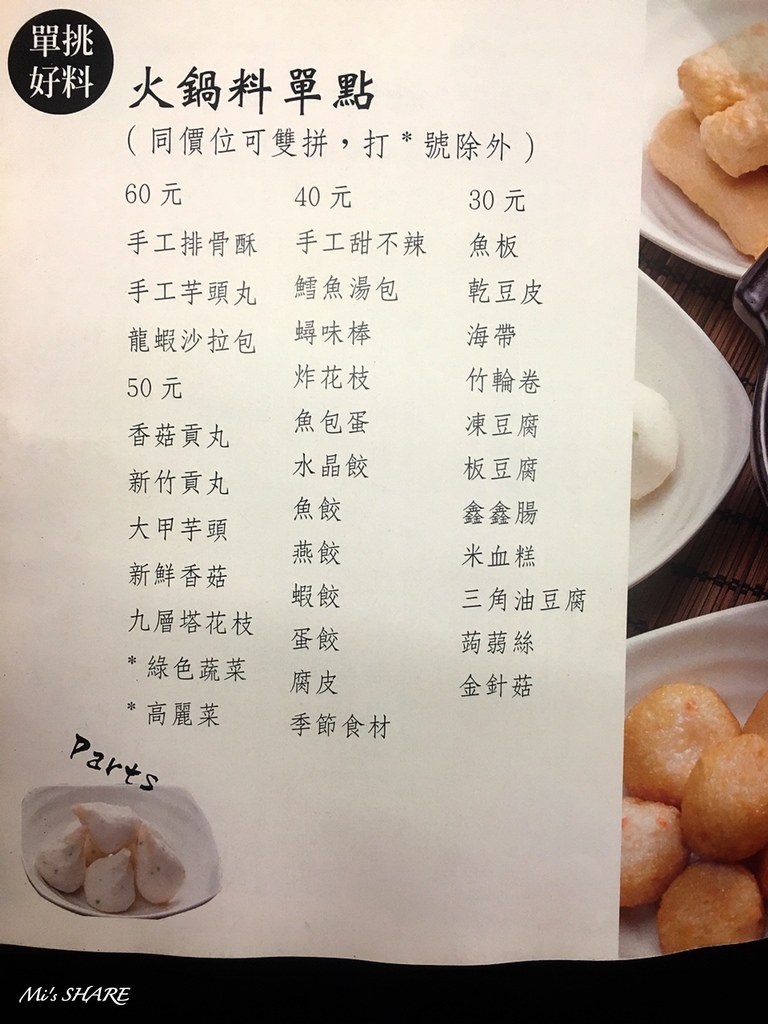 單挑
好料
火鍋料單點
(同價位可雙拼，打*號除外)
60元
手工排骨酥
手工芋頭丸
龍蝦沙拉包
50元
香菇貢丸
新竹貢丸
大甲芋頭
新鮮香菇
九層塔花枝
*綠色蔬菜
*高麗菜
40元
手工甜不辣
鱈魚湯包
蟳味棒
炸花枝
魚包蛋
水晶餃
魚餃
燕餃
蝦餃
蛋餃
腐皮
季節食材
30元
魚板
乾豆皮
海帶
竹輪卷
凍豆腐
板豆腐
鑫鑫腸
米血糕
三角油豆腐
蒟蒻絲
金針菇
Parts
Mi's SHARE